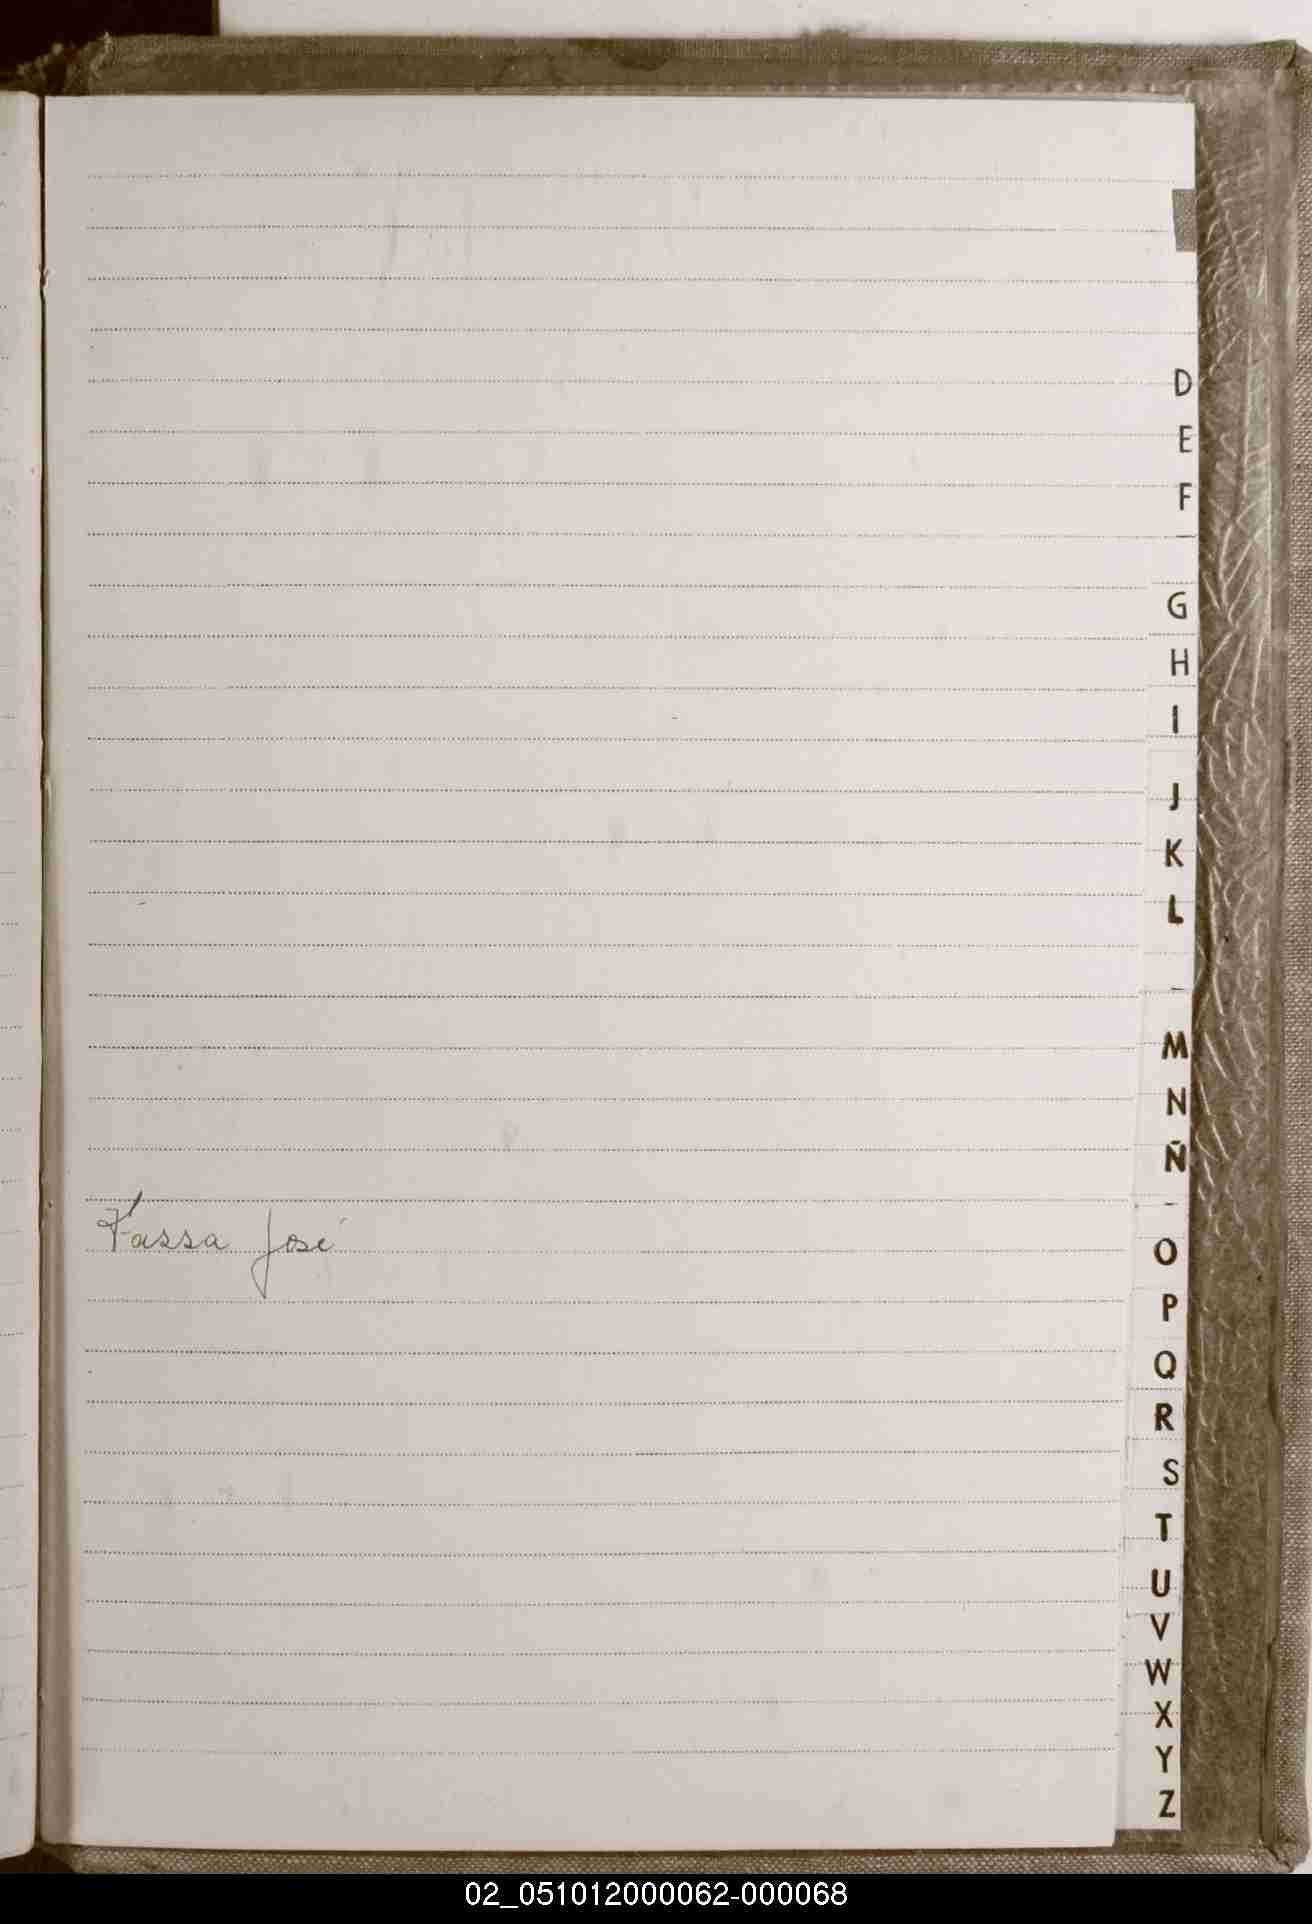 D
E
F
G
H
I
J
K
L
M
N
Ñ
Fassa José
O
P
Q
R
S
T
U
V
W
X
Y
Z
02_051012000062-000068